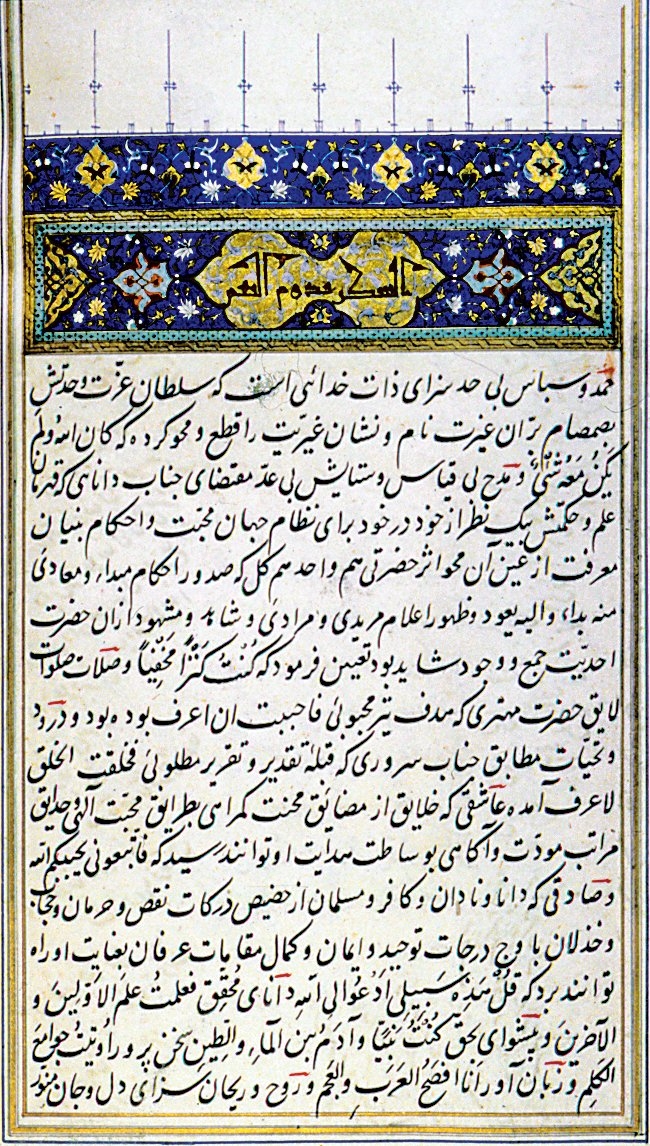 بالشکر تدوم النعم
حمد و سپاس بی حد سزای ذات خدائی است که سلطان عزّت وحدتش
بصمصام برّان غیرت نام و نشان غیریّت را قطع و محو کرده که کان الله ولم
یکن مَعَه شَیْئٌ و مدح بی قیاس و ستایش بی عدّ مقتضای جناب دانائی که قهرمان
علم و حکمتش بیک نظر از خود در خود برای نظام جهان محبّت و احکام بنیان
معرفت از عین آن محو اثر حضرتی هم واحد هم کل که صدور احکام مبداء و معادی
منه بداء و الیه یعود و ظهور اعلام مریدی و مرادی و شاهد و مشهود ازان حضرت
احدیّت جمع و وجود شاید بود تعیین فرمود که کُنْتُ کَنْزًا مَخْفِیّاً وصَلات صلوات
لایق حضرت مهتری که هدف تیر محبوبی فاحببت ان اعرف بوده بود و درود
و تحیّات مطابق جناب سروری که قبلهٔ تقدیر و تقریر مطلوبی فخلقت الخلق
لاعرف آمده عاشقی که خلایق از مضائق محنت کمراهی بطرایق محبّت آلهی و حدایق
مراتب مودّت و آکاهی بوساطت هدایت او توانند رسید که فاتبعونی یحببکم الله
و صادقی که دانا و نادان و کافر و مسلمان از حضیض درکات نقص و حرمان و حجاب
و خذلان باوج درجات توحید و ایمان و کمال مقامات عرفان بعنایت او راه
توانند برد که قُلْ هَذِه سَبیلی اَدْعُوا اِلی الله دانای مُحقِق فعلمتُ علمَ الاَوّلینَ و
الآخرین و پیشوای بحق کُنْتُ نَبِیّاً و آدَمُ بین الماءِ والطّینِ سخن پرور اُوتیتُ جوامعَ
الکَلِم و زبان آور اَنا افصَحُ العَرَبِ والعَجَم و رَوح و ریحان سزای دل و جان منوّر